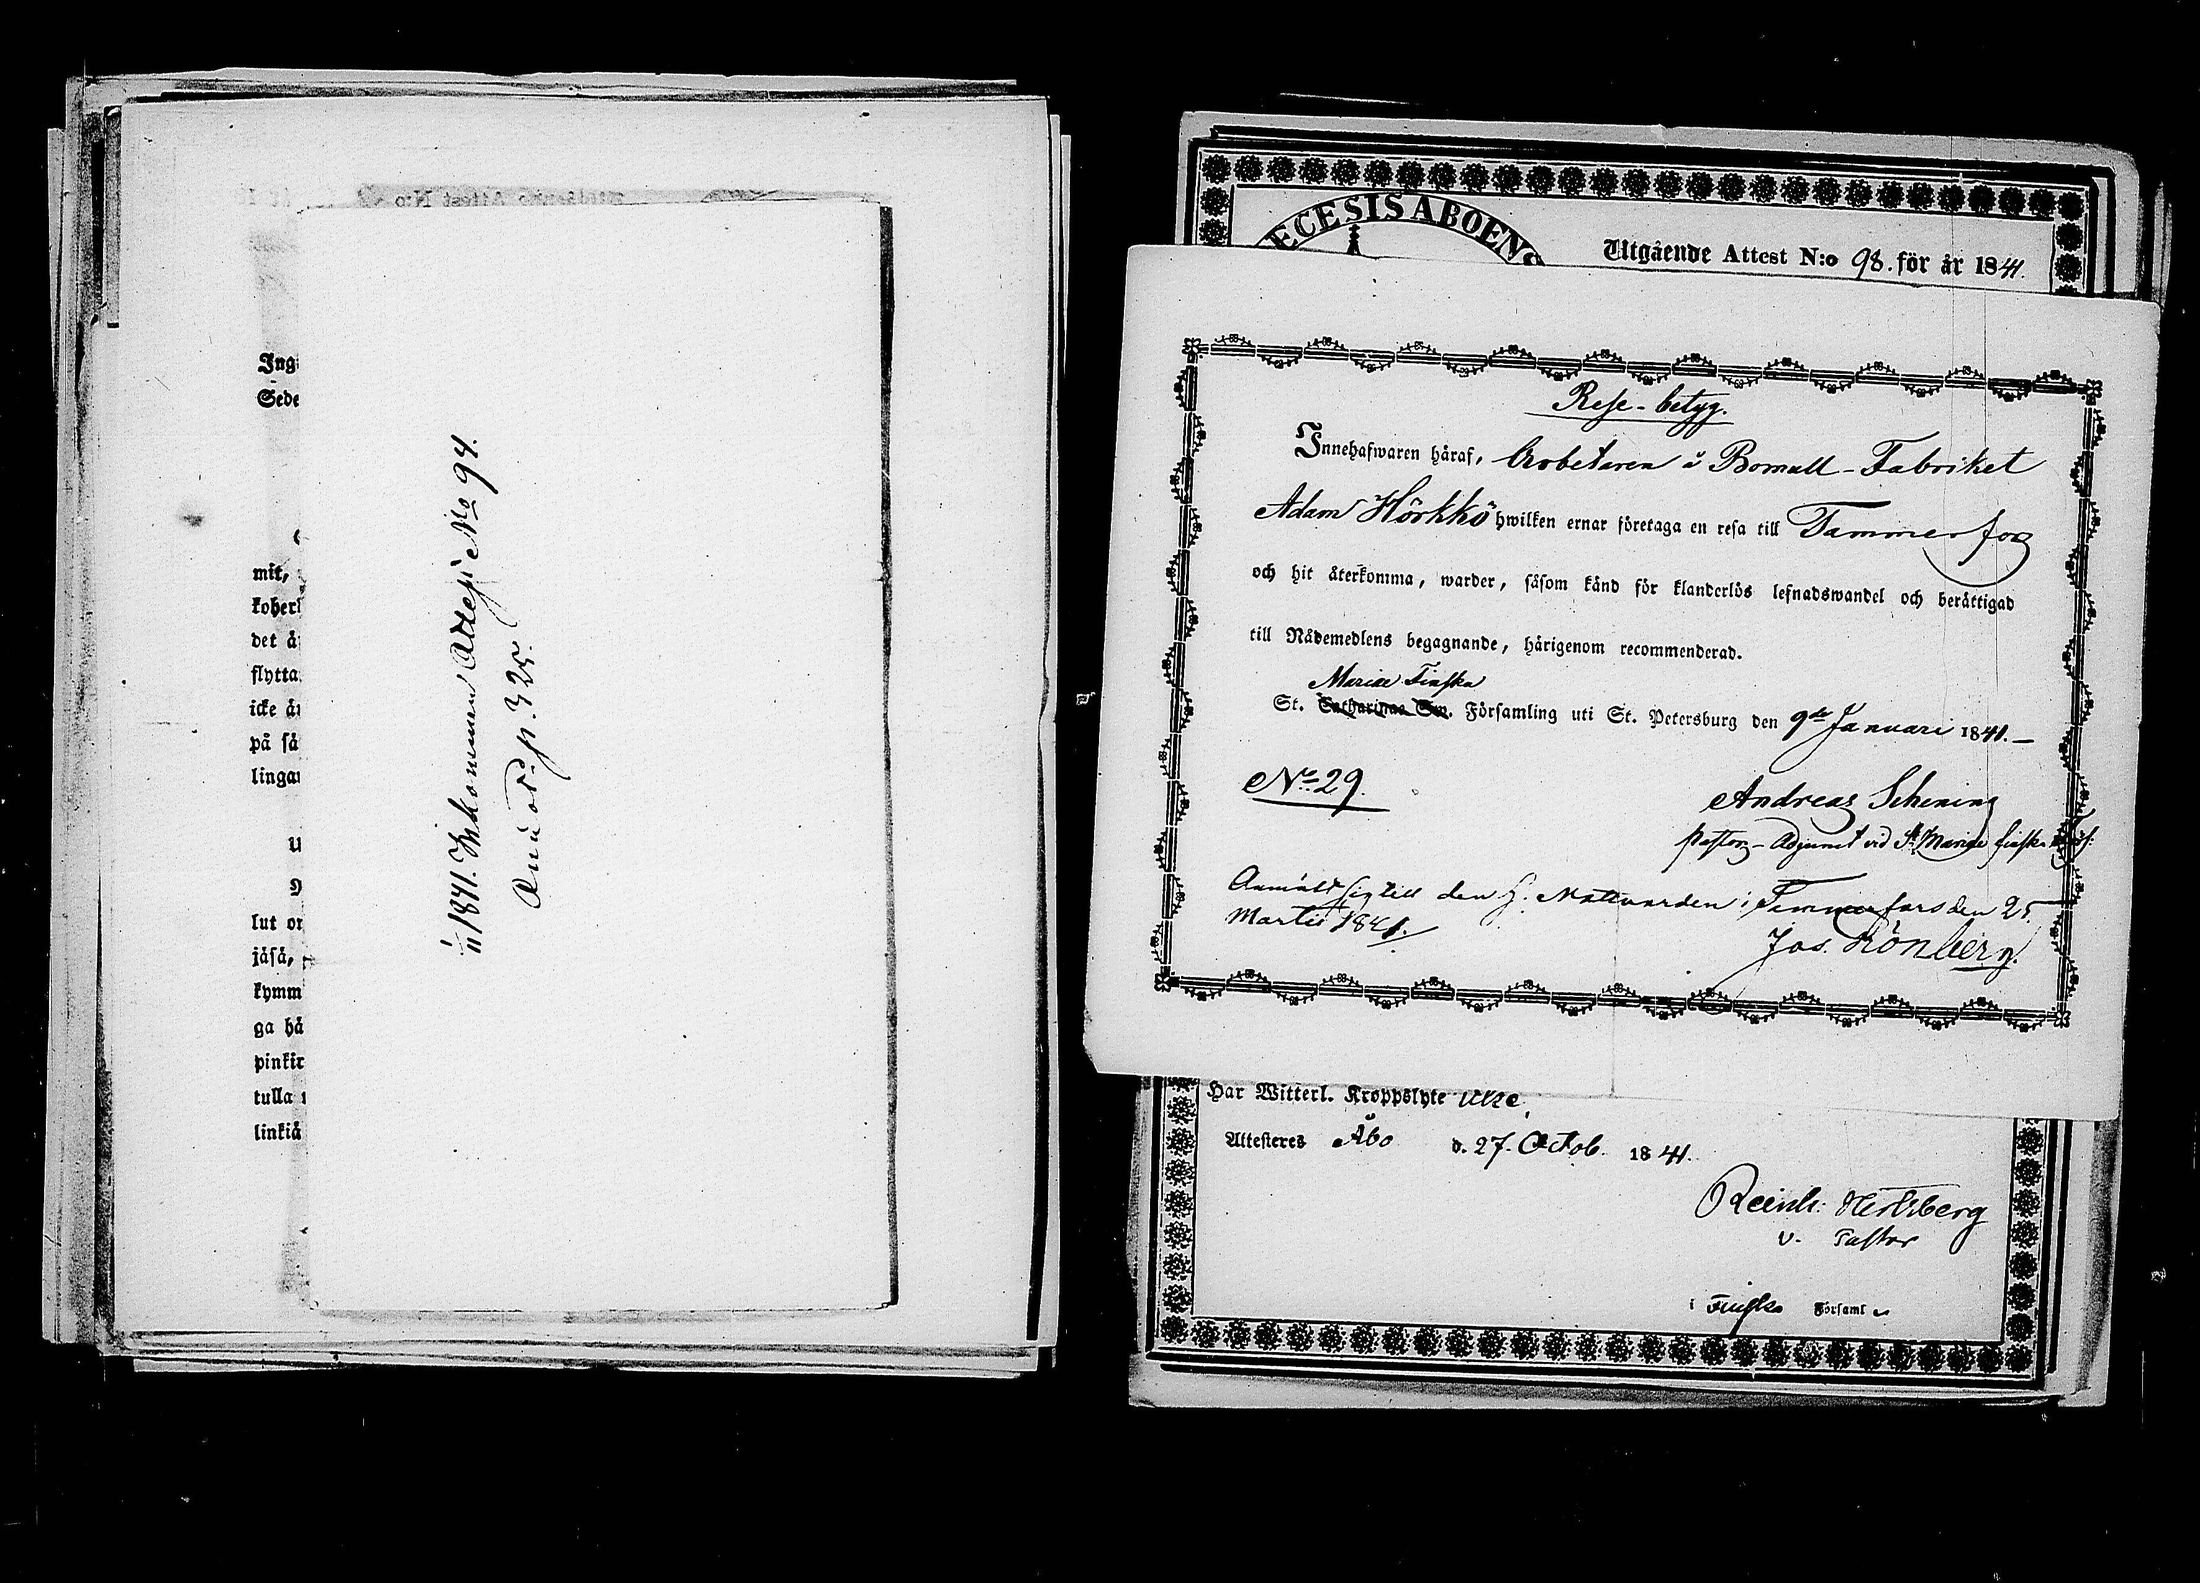 Ing
Sede
mit,
koher
det ä
flytta
icke ä
på så
linga
U
N
lut o
jäsä,
kymm
ga hä
pinkir
tulla
linkiä
1841. Inkommen Attest No 94.
p. 325.
ECESIS ABOENS
Utgående Attest N:o 98. för år 1841.
Rese-betyg.
Innehafwaren häraf, Arbetaren å Bomull-Fabriket
Adam Hörkkö hwilken ernar företaga en resa till Tammerfors
och hit återkomma, warder, såsom känd för klanderlös lefnadswandel och berättigad
till Nådemedlens begagnande, härigenom recommenderad.
Mariæ Finska
St. Catharinae Sw. Församling uti St. Petersburg den 9de Januari 1841.
No 29.
Andreas Schening
Pastors-Adjunct vid St Mariæ Finska
Anmält sig till den H. Nattvarden i Tammerfors den 25
Martii 1841.
Jos. Grönberg.
Har Witterl. Kroppslyte icke
Attesteres Åbo d. 27. Octob. 1841.
Reinh. Hertzberg
v. Pastor
i Finska Församl